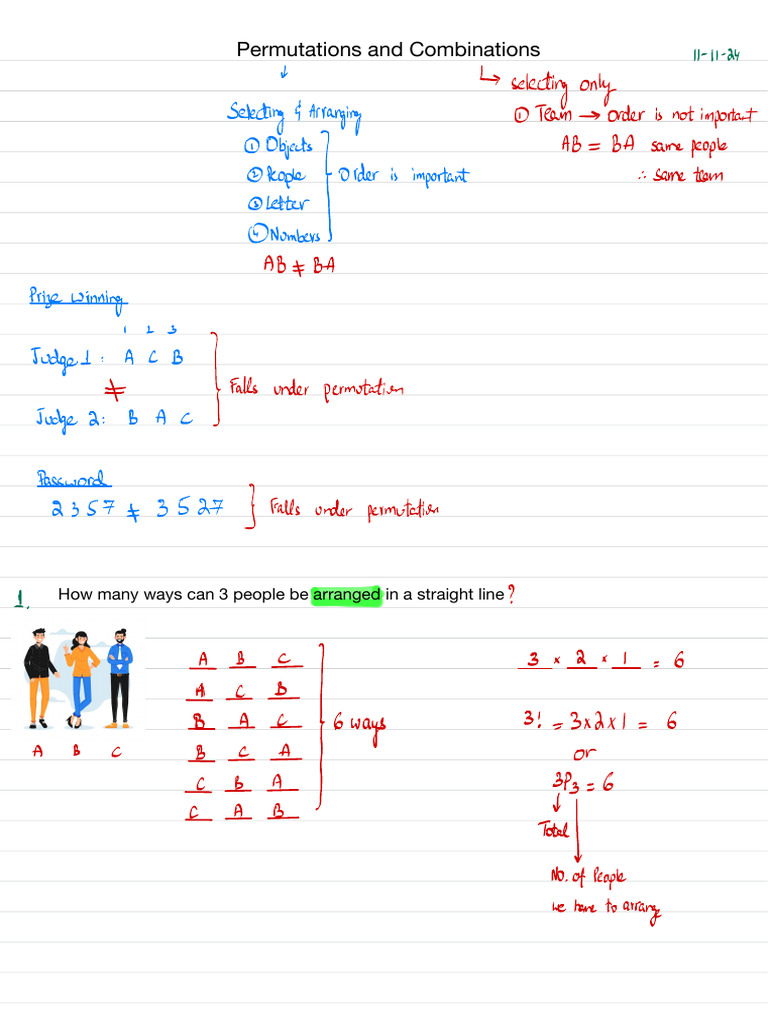 Permutations and Combinations
11-11-24
↓
↳ selecting only
Selecting & Arranging
① Team → order is not important
① Objects
AB = BA same people
② People
Order is important
∴ same team
③ Letter
④ Numbers
AB ≠ BA
Prize winning
1 2 3
Judge 1 : A C B
≠
Falls under permutation
Judge 2: B A C
Password
2357 ≠ 3527
Falls under permutation
1. How many ways can 3 people be arranged in a straight line?
A B C
A B C
A C B
B A C
B C A
C B A
C A B
6 ways
3 × 2 × 1 = 6
3! = 3×2×1 = 6
or
3P3 = 6
Total
No. of People
we have to arrang